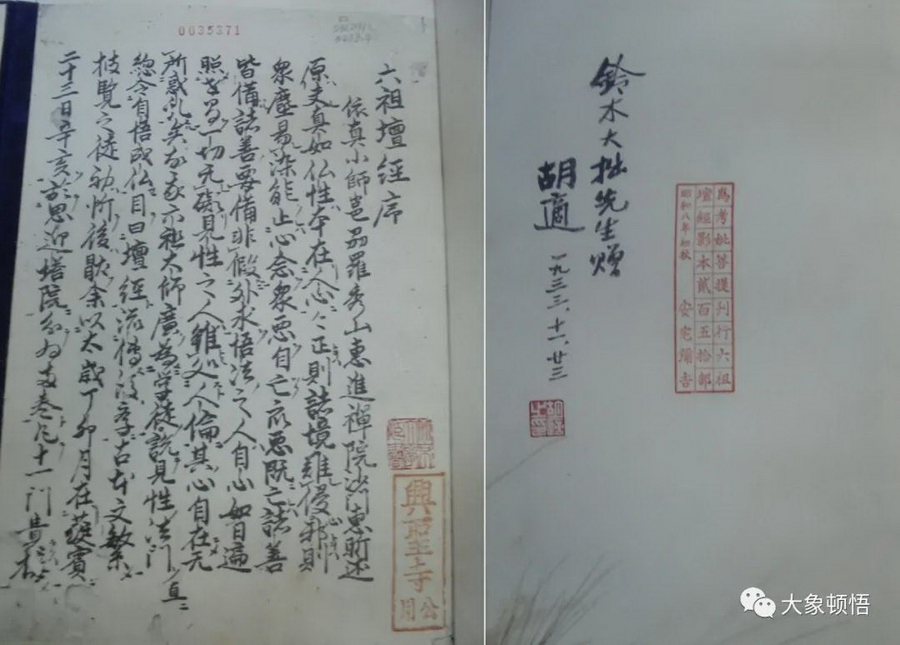 0035371
六祖壇經序
依真小師邕州羅秀山惠進禪院沙門惠昕述
原夫真如仏性本在人心〻正則諸境難侵邪則
衆塵易染能止心念衆惡自亡衆惡既亡諸善
皆備諸善要備非假外求悟法之人自心如日遍
照世間一切无礙見性之人雖処人倫其心自在无
所惑乱矣故我六祖大師廣為學徒説見性法門直
總令自悟成仏目曰壇經流傳後學古本文繁
披覽之徒初忻後猒余以太歲丁卯月在蕤賓
二十三日辛亥於思迎塔院分為兩卷凡十一門貴接
興聖寺
公用
鈴木大拙先生贈
胡適 一九三三、十一、廿三
胡適之印
為考妣菩提刊行六祖
壇經影本貳百五拾部
昭和八年初秋 安宅彌吉
大象顿悟